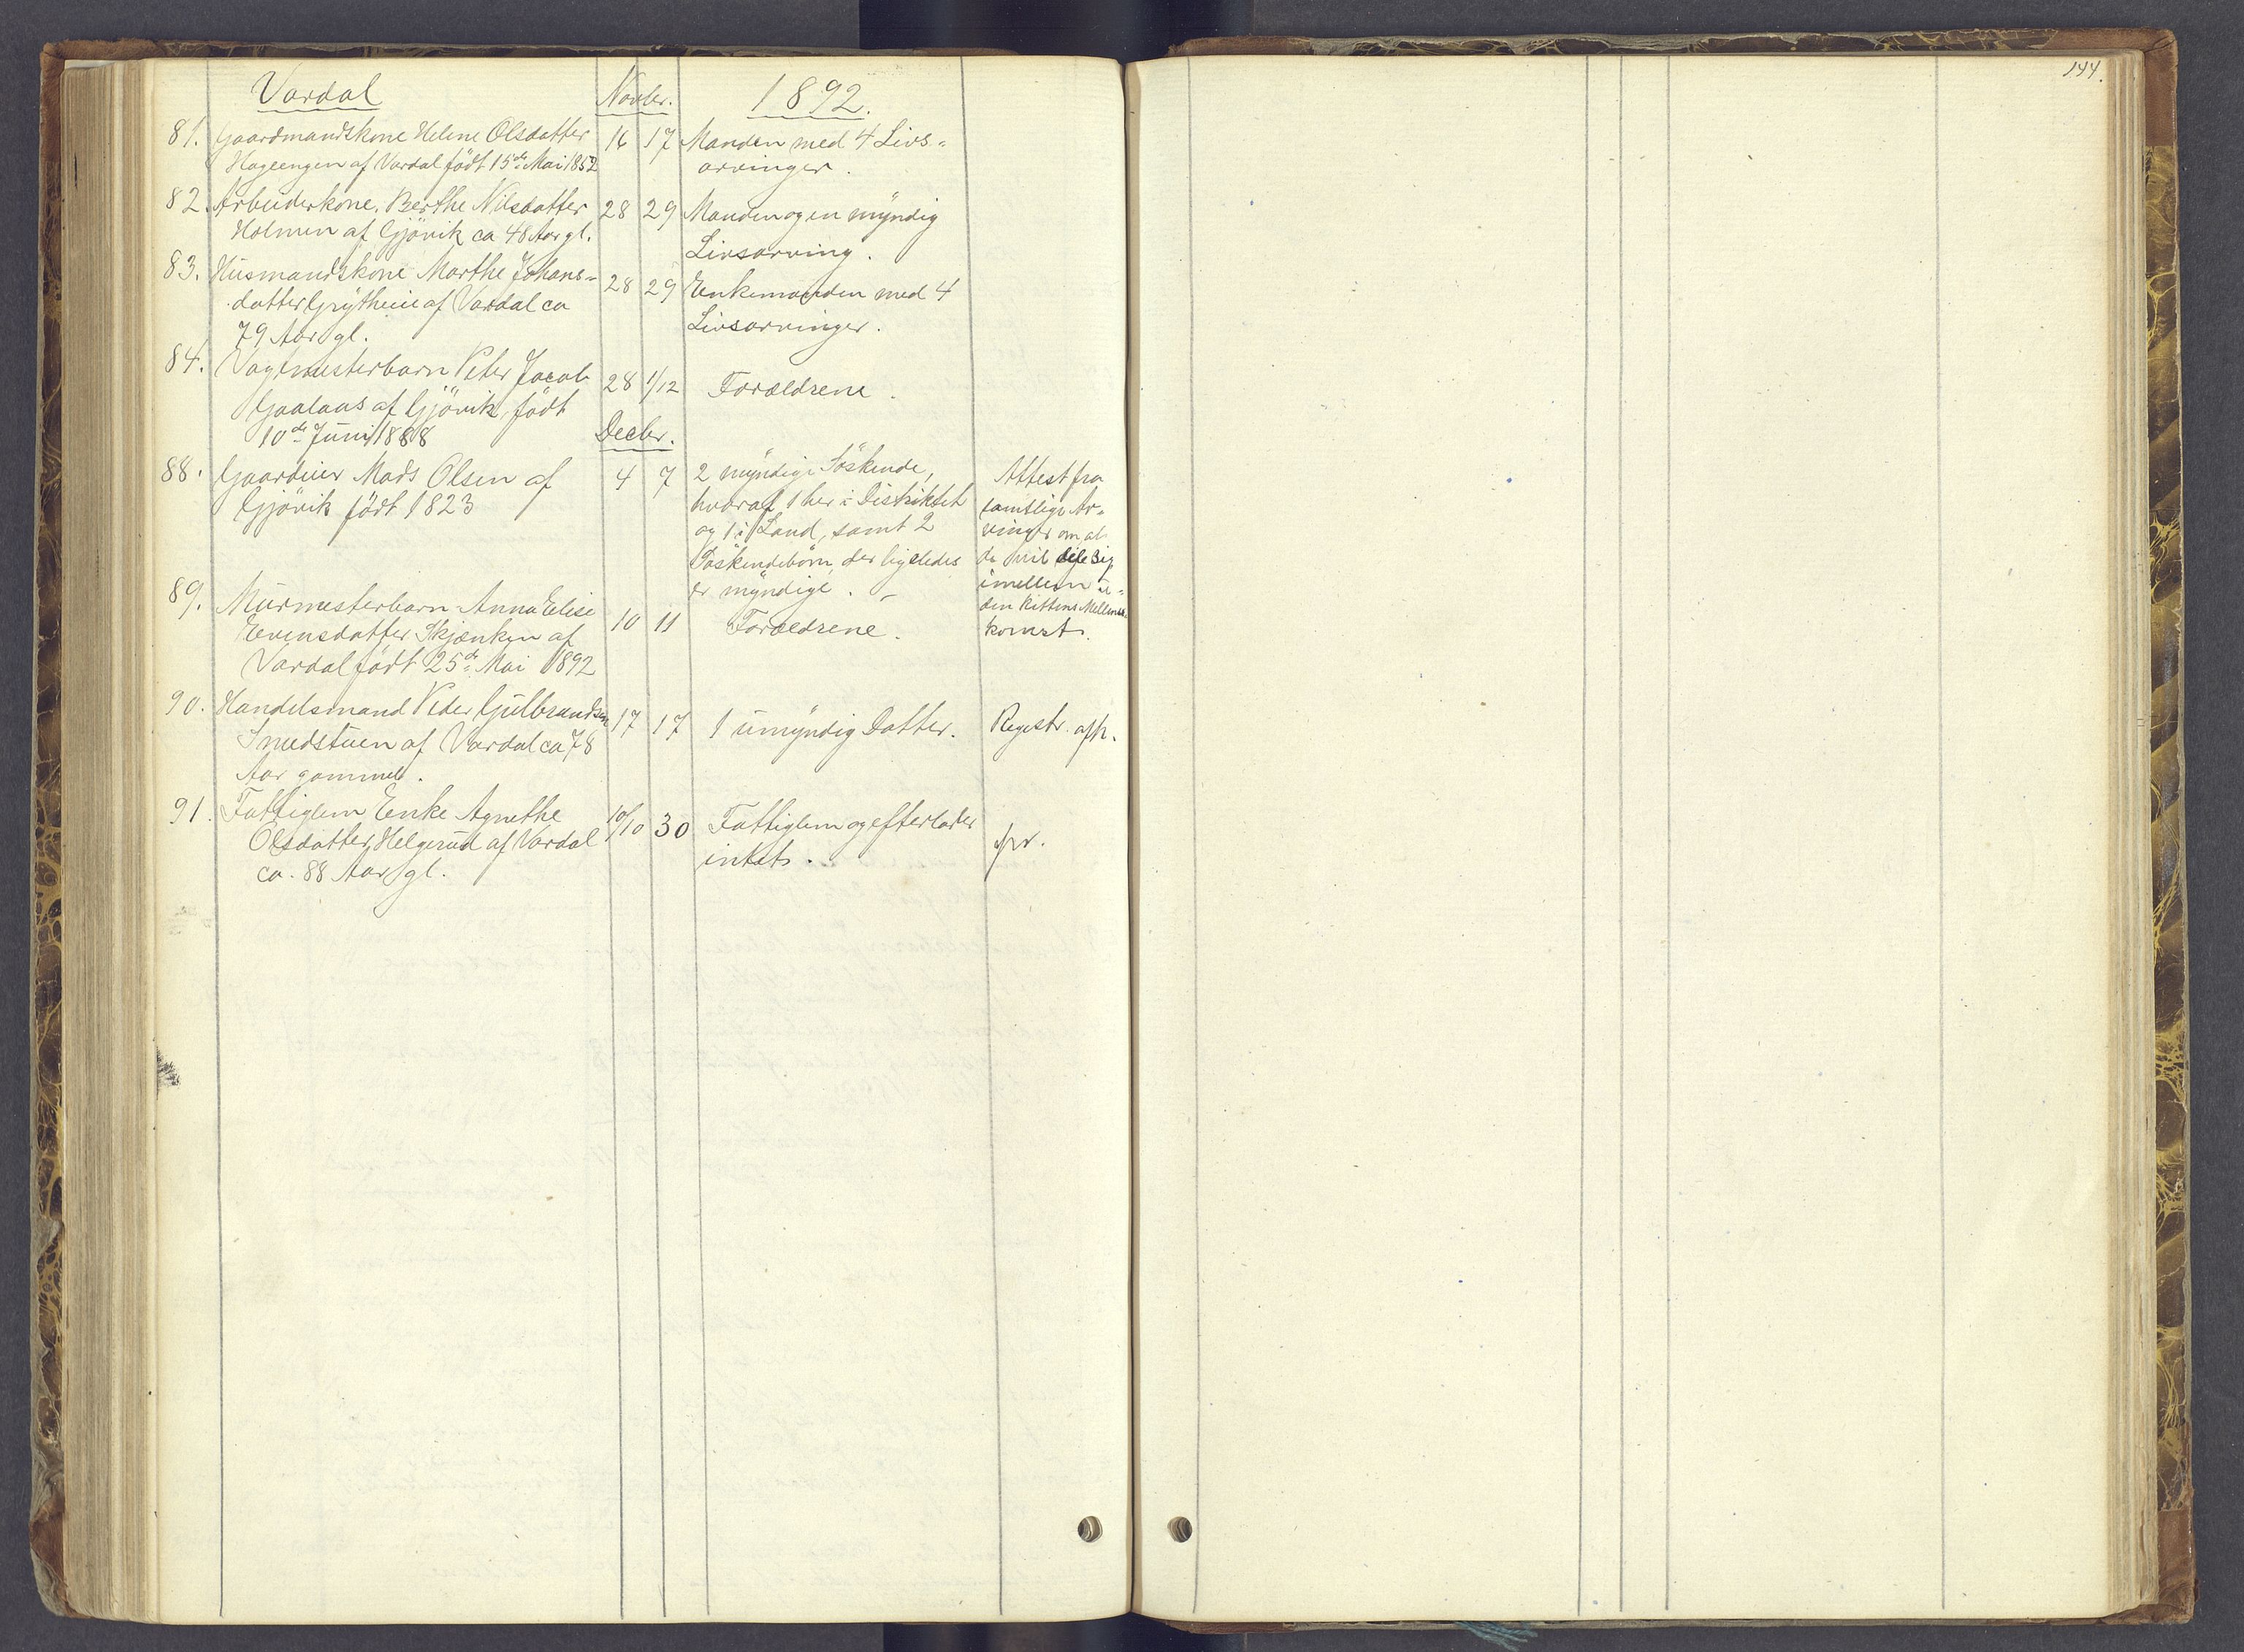 Vardal Novbr. 1892.
81. Gaardmandskone Helene Olsdatter 16 17 Manden med 4 Livs-
Hageengen af Vardal födt 15de Mai 1852 arvinger.
82. Arbeiderkone Berthe Nilsdatter 28 29 Manden og en myndig
Holmen af Gjövik ca 48 Aar gl. Livsarving.
83. Husmandskone Marthe Johans- 28 29 Enkemanden med 4
datter Grytheie af Vardal ca Livsarvinger.
79 Aar gl.
84. Vagtmesterbarn Peter Jacob 28 1/12 Forældrene.
Gaalaas af Gjövik, födt
10de Juni 1888
Decbr.
88. Gaardeier Mads Olsen af 4 7 2 myndige Söskende, Attest fra
Gjövik födt 1823 hvoraf 1 her i Distriktet samtlige Ar-
og 1 i Land, samt 2 vinger om at
Söskendebörn, der ligeledes de vil dele sig
er myndige. imellem u-
den Rettens Mellem-
komst.
89. Murmesterbarn Anna Elise 10 11 Forældrene.
Evensdatter Skjænken af
Vardal födt 25de Mai 1892
90. Handelsmand Peder Gulbrandsen 17 17 1 umyndig Datter. Registr. afh.
Smedstuen af Vardal ca 78
Aar gammel.
91. Fattiglem Enke Agnethe 10/10 30 Fattiglem og efterlader
Olsdatter Helgerud af Vardal intet.
ca. 88 Aar gl.
144.